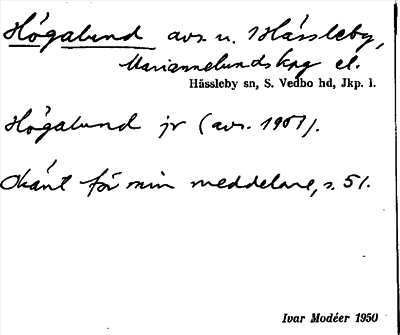 Högalund avs. u. Hässleby,
Mariannelunds kpg el.
Hässleby sn, S. Vedbo hd, Jkp. l.
Högalund jr (avs. 1907).
Okänt för min meddelare, s. 51.
Ivar Modéer 1950